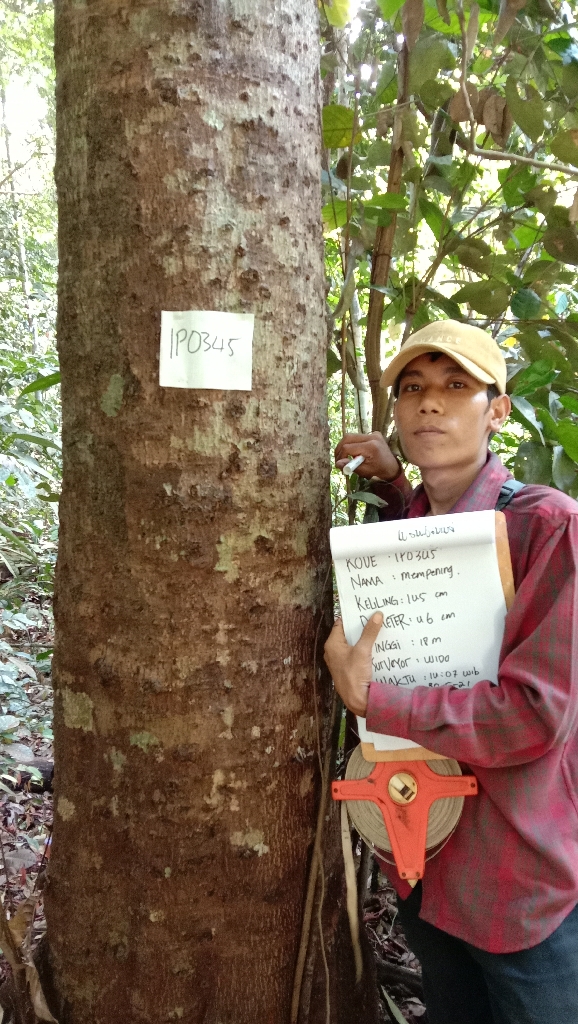 IP0345
KODE : IP0345
NAMA : mempening.
KELLING : 145 cm
DIAMETER : 46 cm
TINGGI : 18 m
Surveyor : WIDO
WAKTU : 14:07 wib